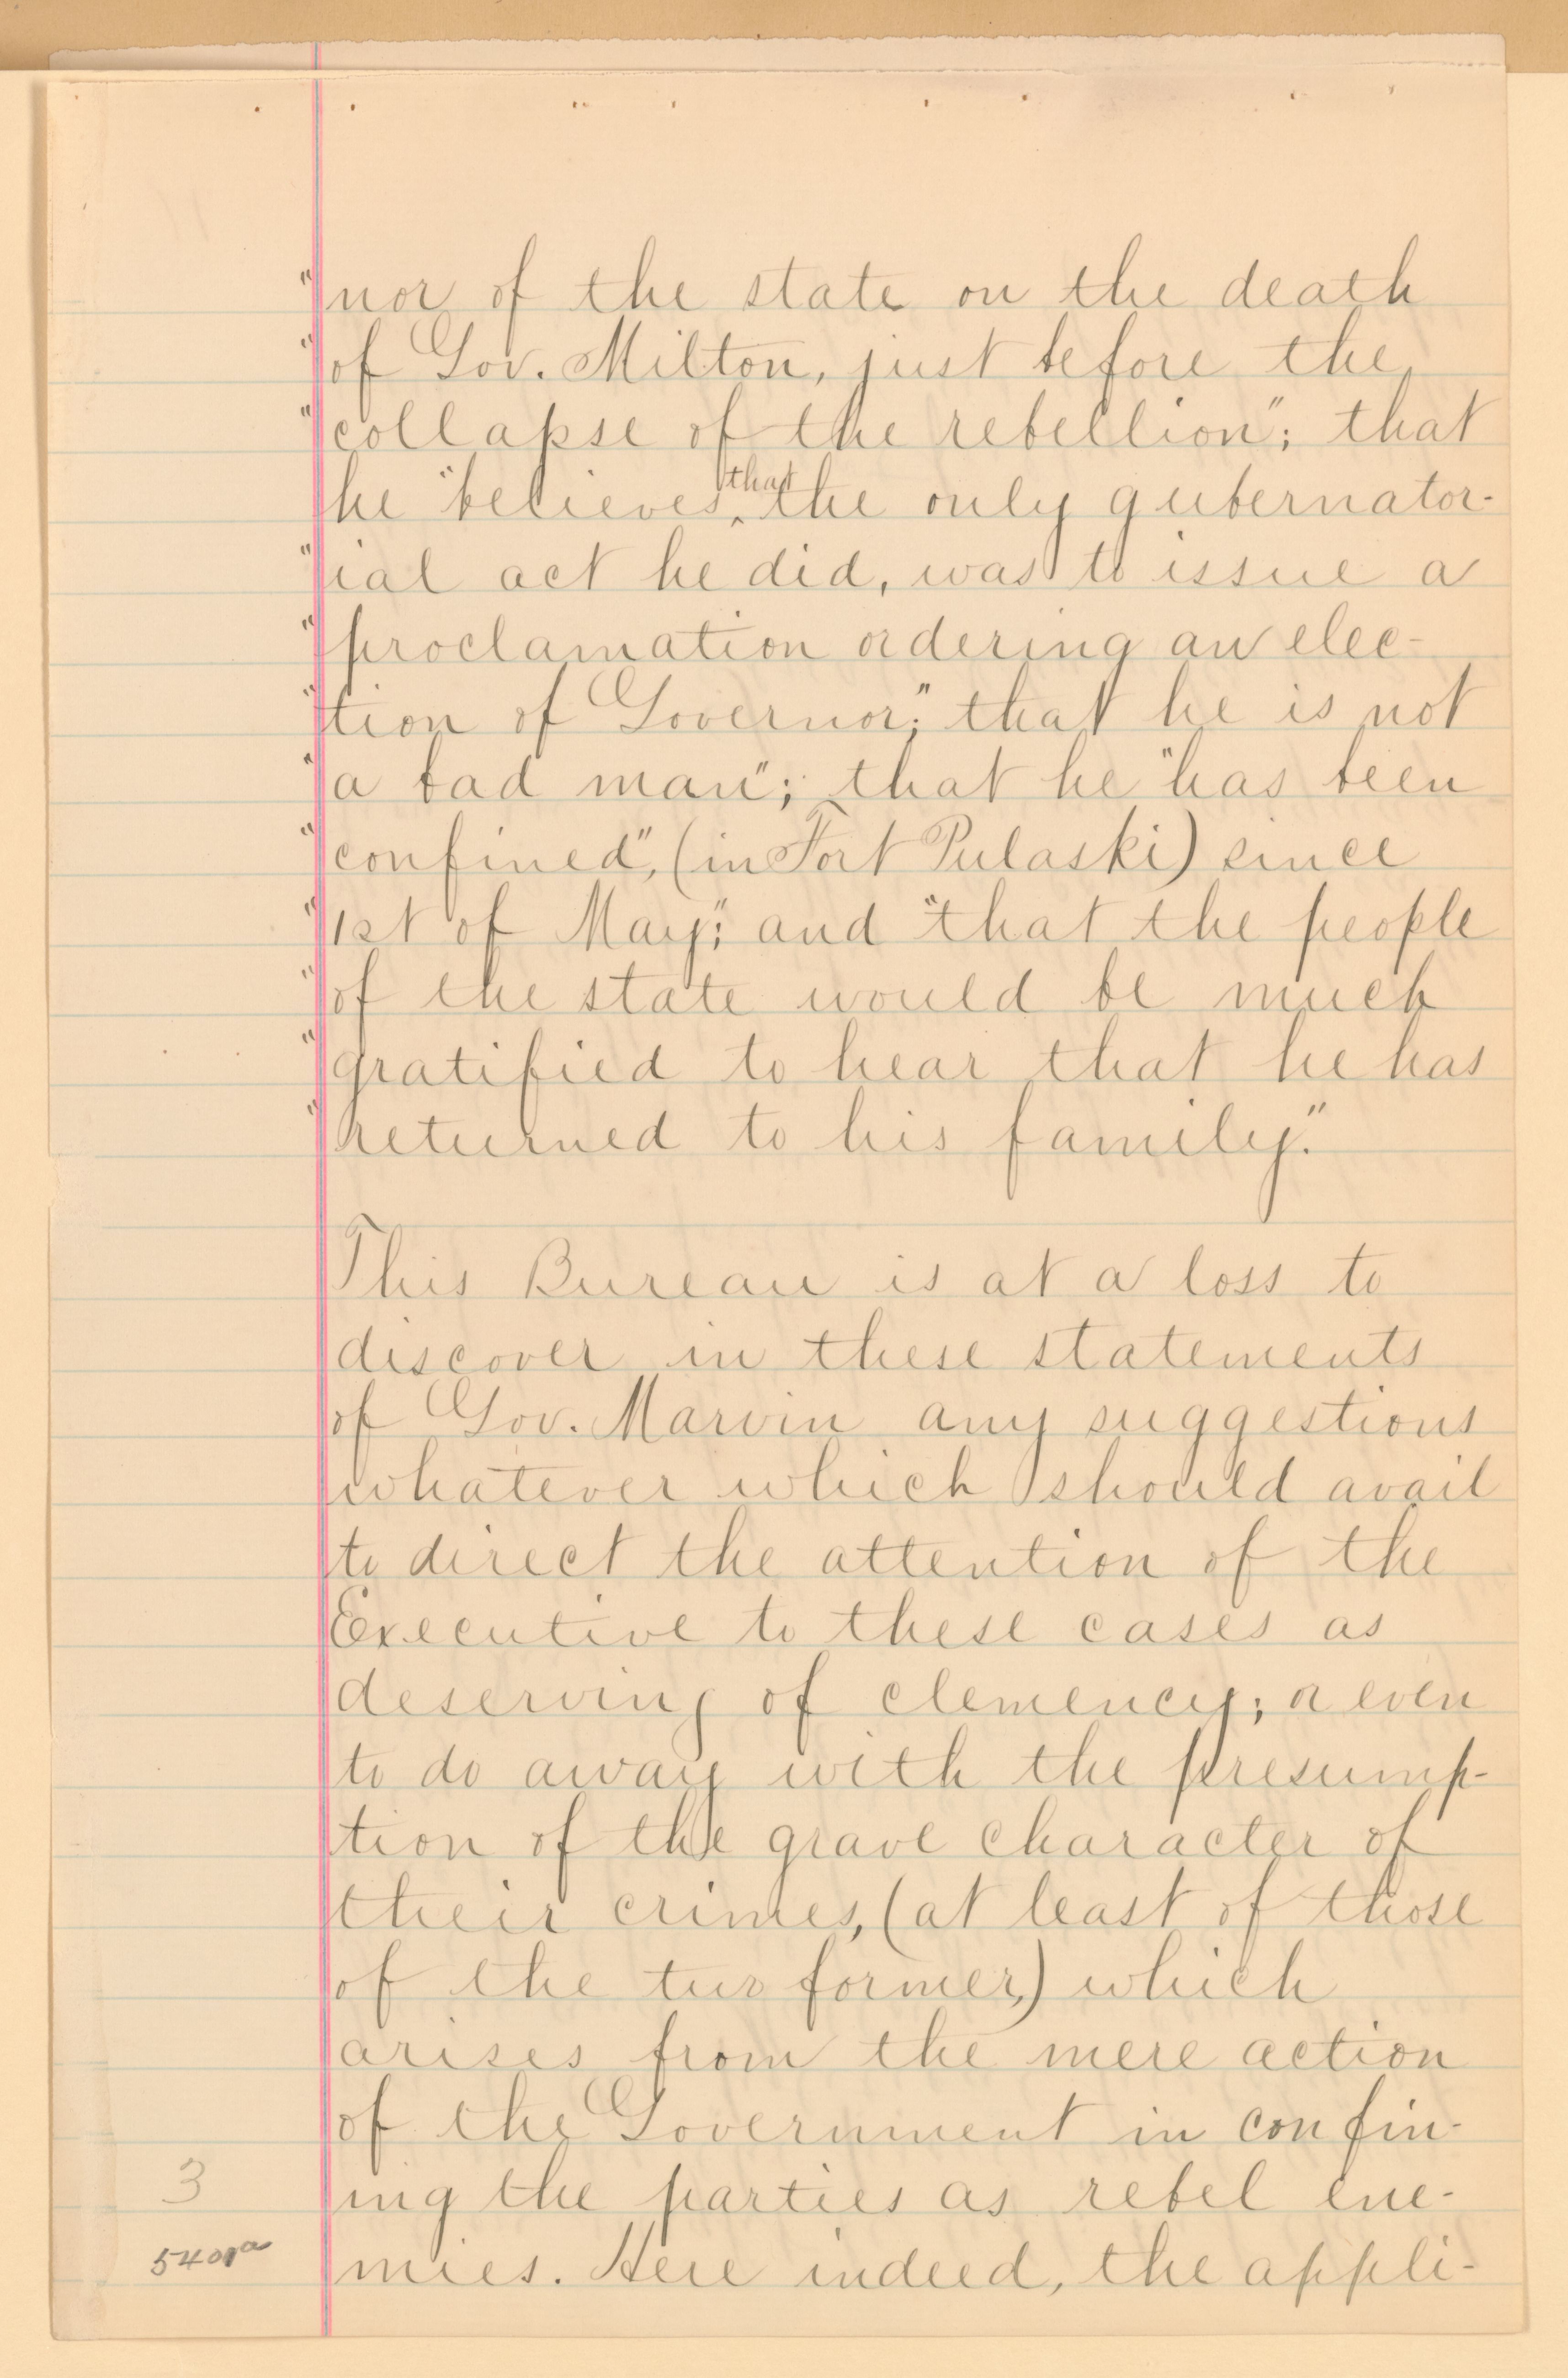 "nor of the state on the death
"of Gov. Milton, just before the
"collapse of the rebellion"; that
he "believes that the only gubernator-
"ial act he did, was to issue a
"proclamation ordering an elec-
"tion of Governor;" that he is not
"a bad man"; that he "has been
"confined", (in Fort Pulaski) since
"1st of May"; and "that the people
"of the state would be much
"gratified to hear that he has
"returned to his family."
This Bureau is at a loss to
discover in these statements
of Gov. Marvin any suggestions
whatever which should avail
to direct the attention of the
Executive to these cases as
deserving of clemency; or even
to do away with the presump-
tion of the grave character of
their crimes, (at least of those
of the two former,) which
arises from the mere action
of the Government in confin-
ing the parties as rebel ene-
mies. Here indeed, the appli-
3
5401a